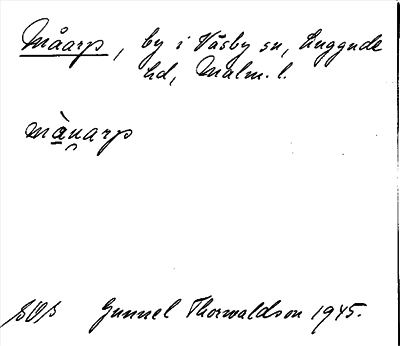 Måarp, by i Väsby sn, Luggude
hd, Malm. l.
mànarp
SOS Gunnel Thorwaldson 1945.